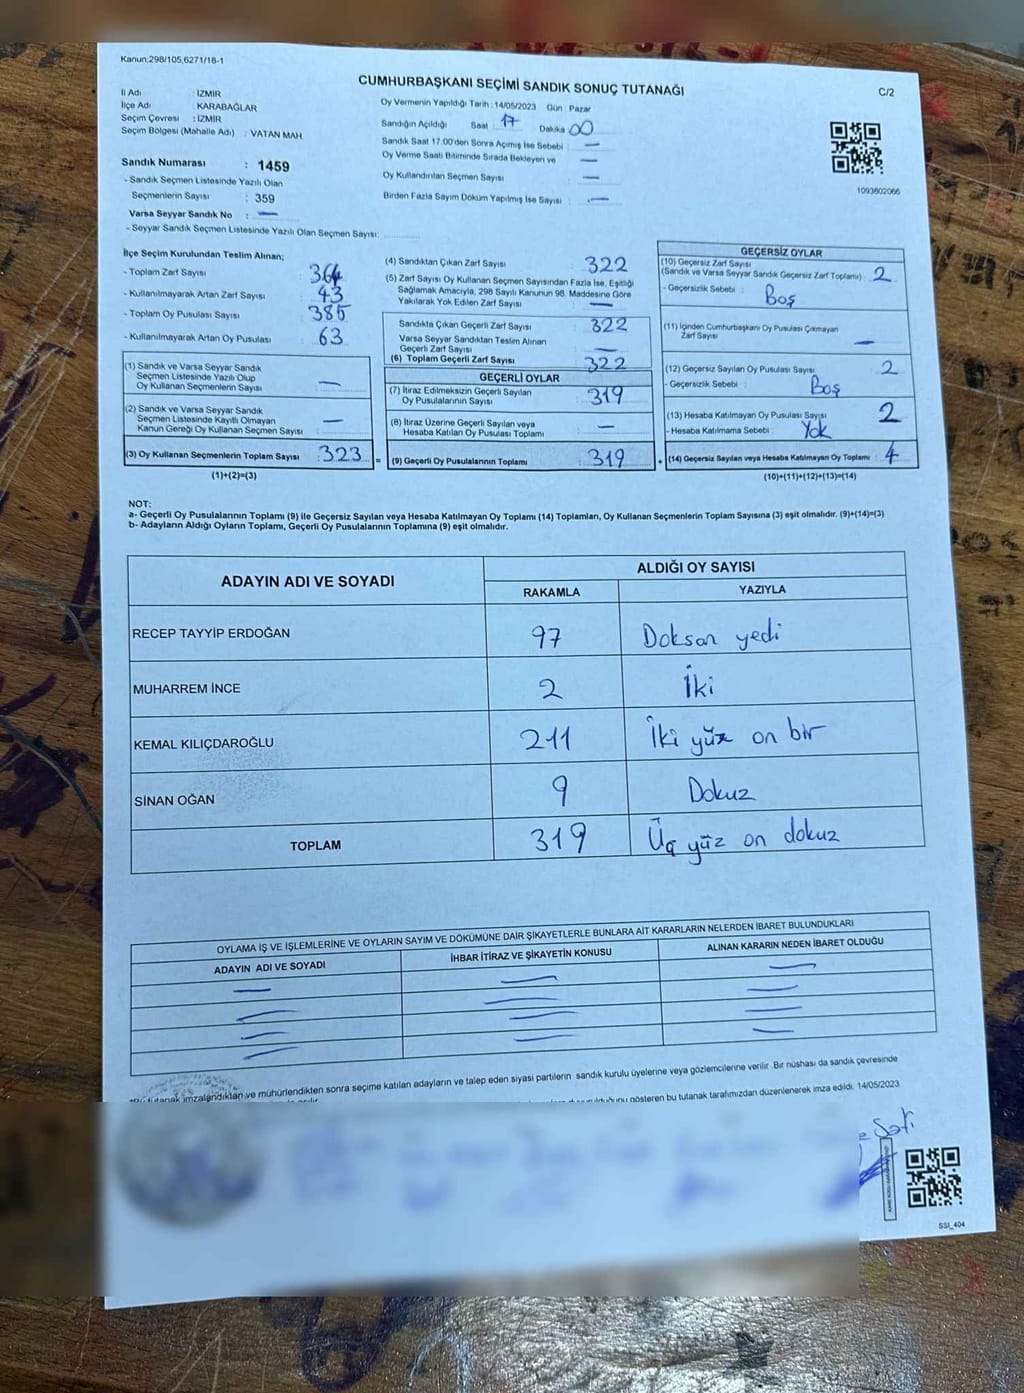 Kanun,298/105,6271/18-1
CUMHURBAŞKANI SEÇİMİ SANDIK SONUÇ TUTANAĞI
C/2
İl Adı : İZMİR
İlçe Adı : KARABAĞLAR
Seçim Çevresi : İZMİR
Seçim Bölgesi (Mahalle Adı) : VATAN MAH.
Sandık Numarası : 1459
- Sandık Seçmen Listesinde Yazılı Olan
Seçmenlerin Sayısı : 359
Varsa Seyyar Sandık No : —
- Seyyar Sandık Seçmen Listesinde Yazılı Olan Seçmen Sayısı:
Oy Vermenin Yapıldığı Tarih : 14/05/2023 Gün : Pazar
Sandığın Açıldığı Saat 17 Dakika 00
Sandık Saat 17.00'den Sonra Açımış İse Sebebi —
Oy Verme Saati Bitiminde Sırada Bekleyen ve —
Oy Kullandırılan Seçmen Sayısı : —
Birden Fazla Sayım Döküm Yapılmış İse Sayısı : —
1093602066
İlçe Seçim Kurulundan Teslim Alınan;
- Toplam Zarf Sayısı : 364
- Kullanılmayarak Artan Zarf Sayısı : 43
- Toplam Oy Pusulası Sayısı : 385
- Kullanılmayarak Artan Oy Pusulası : 63
(1) Sandık ve Varsa Seyyar Sandık
Seçmen Listesinde Yazılı Olup
Oy Kullanan Seçmenlerin Sayısı : —
(2) Sandık ve Varsa Seyyar Sandık
Seçmen Listesinde Kayıtlı Olmayan
Kanun Gereği Oy Kullanan Seçmen Sayısı : —
(3) Oy Kullanan Seçmenlerin Toplam Sayısı : 323 =
(1)+(2)=(3)
(4) Sandıktan Çıkan Zarf Sayısı : 322
(5) Zarf Sayısı Oy Kullanan Seçmen Sayısından Fazla İse, Eşitliği
Sağlamak Amacıyla, 298 Sayılı Kanunun 98. Maddesine Göre
Yakılarak Yok Edilen Zarf Sayısı : —
Sandıkta Çıkan Geçerli Zarf Sayısı : 322
Varsa Seyyar Sandıktan Teslim Alınan
Geçerli Zarf Sayısı : —
(6) Toplam Geçerli Zarf Sayısı : 322
GEÇERLİ OYLAR
(7) İtiraz Edilmeksizin Geçerli Sayılan
Oy Pusulalarının Sayısı : 319
(8) İtiraz Üzerine Geçerli Sayılan veya
Hesaba Katılan Oy Pusulası Toplamı : —
(9) Geçerli Oy Pusulalarının Toplamı : 319 +
GEÇERSİZ OYLAR
(10) Geçersiz Zarf Sayısı
(Sandık ve Varsa Seyyar Sandık Geçersiz Zarf Toplamı) : 2
- Geçersizlik Sebebi : Boş
(11) İçinden Cumhurbaşkanı Oy Pusulası Çıkmayan
Zarf Sayısı : —
(12) Geçersiz Sayılan Oy Pusulası Sayısı : 2
- Geçersizlik Sebebi : Boş
(13) Hesaba Katılmayan Oy Pusulası Sayısı : 2
- Hesaba Katılmama Sebebi : Yok
(14) Geçersiz Sayılan veya Hesaba Katılmayan Oy Toplamı : 4
(10)+(11)+(12)+(13)=(14)
NOT:
a- Geçerli Oy Pusulalarının Toplamı (9) ile Geçersiz Sayılan veya Hesaba Katılmayan Oy Toplamı (14) Toplamları, Oy Kullanan Seçmenlerin Toplam Sayısına (3) eşit olmalıdır. (9)+(14)=(3)
b- Adayların Aldığı Oyların Toplamı, Geçerli Oy Pusulalarının Toplamına (9) eşit olmalıdır.
ADAYIN ADI VE SOYADI
ALDIĞI OY SAYISI
RAKAMLA YAZIYLA
RECEP TAYYİP ERDOĞAN 97 Doksan yedi
MUHARREM İNCE 2 İki
KEMAL KILIÇDAROĞLU 211 İki yüz on bir
SİNAN OĞAN 9 Dokuz
TOPLAM 319 Üç yüz on dokuz
OYLAMA İŞ VE İŞLEMLERİNE VE OYLARIN SAYIM VE DÖKÜMÜNE DAİR ŞİKAYETLERLE BUNLARA AİT KARARLARIN NELERDEN İBARET BULUNDUKLARI
ADAYIN ADI VE SOYADI İHBAR İTİRAZ VE ŞİKAYETİN KONUSU ALINAN KARARIN NEDEN İBARET OLDUĞU
— — —
— — —
— — —
— — —
imzalandıktan ve mühürlendikten sonra seçime katılan adayların ve talep eden siyasi partilerin sandık kurulu üyelerine veya gözlemcilerine verilir. Bir nüshası da sandık çevresinde
gösteren bu tutanak tarafımızdan düzenlenerek imza edildi. 14/05/2023
SSI_404